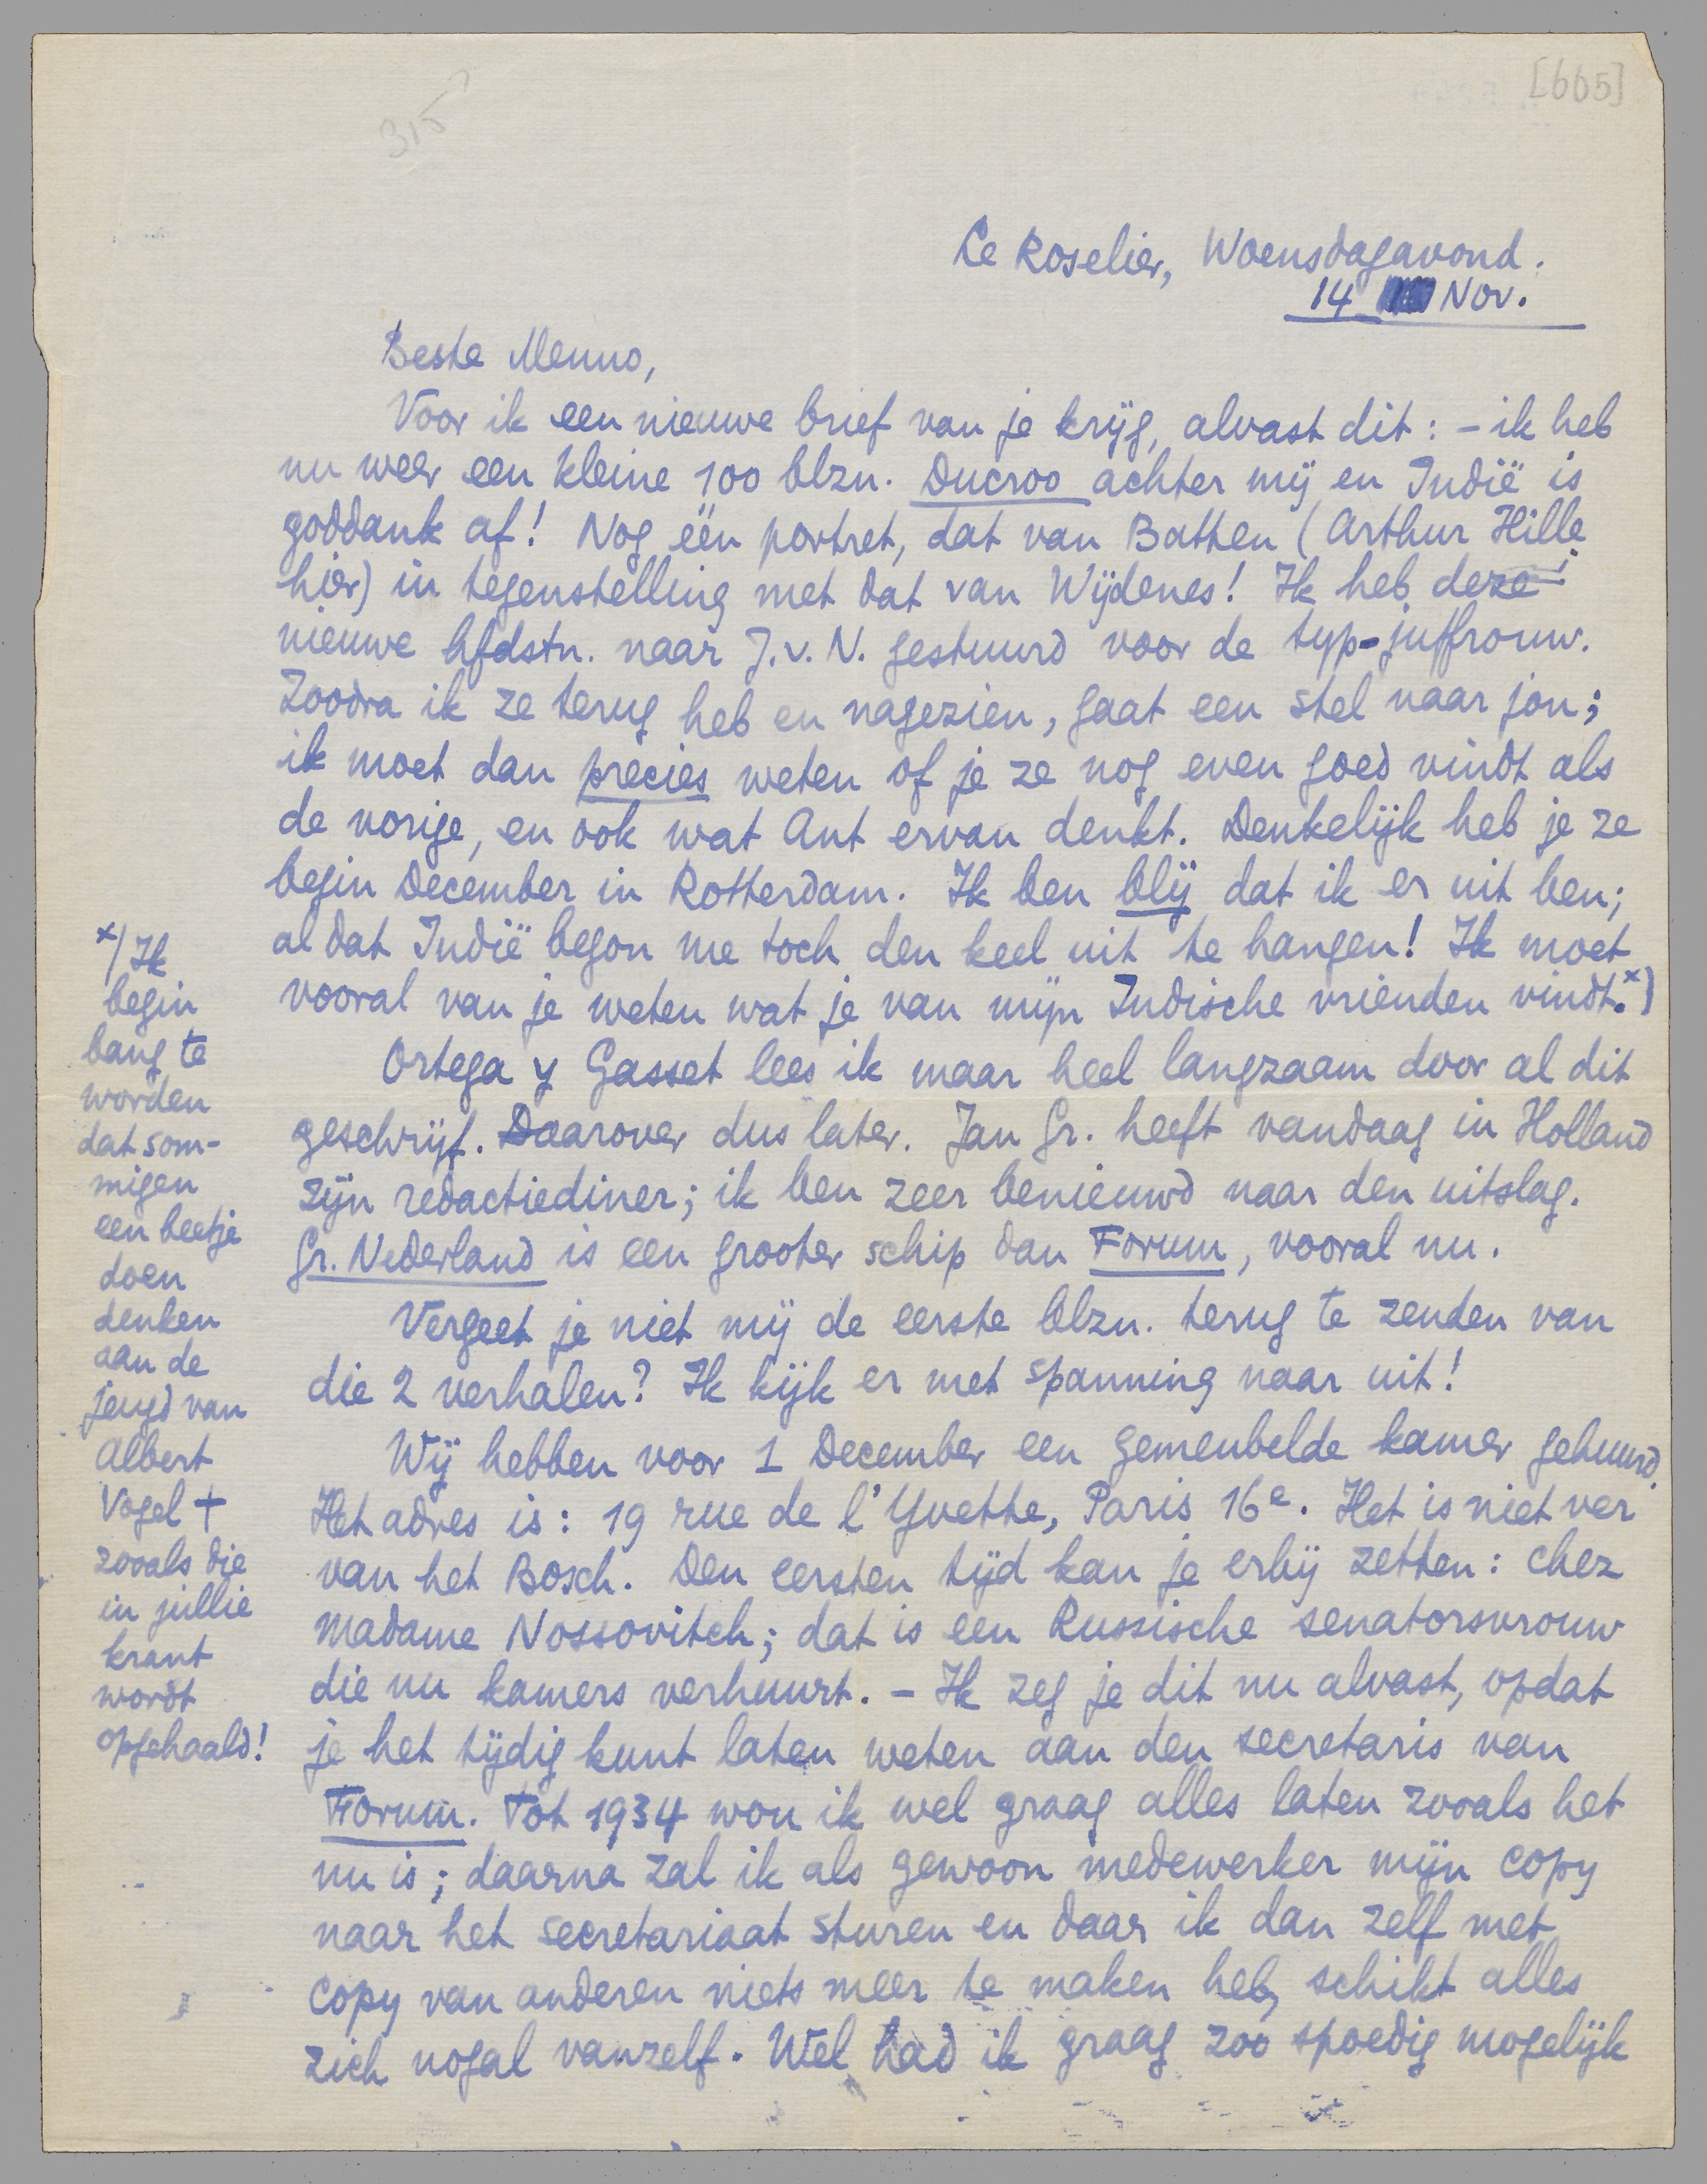 [665]
315
Le Roselier, Woensdagavond.
14 Nov.
Beste Menno,
Voor ik een nieuwe brief van je krijg, alvast dit: – ik heb
nu weer een kleine 100 blzn. Ducroo achter mij en Indië is
goddank af! Nog één portret, dat van Batten (Arthur Hille
hier) in tegenstelling met dat van Wijdenes! Ik heb deze
nieuwe hfdstn. naar J.v.N. gestuurd voor de typ-juffrouw.
Zoodra ik ze terug heb en nagezien, gaat een stel naar jou;
ik moet dan precies weten of je ze nog even goed vindt als
de vorige, en ook wat Ant ervan denkt. Denkelijk heb je ze
begin December in Rotterdam. Ik ben blij dat ik er uit ben;
al dat Indië begon me toch den keel uit te hangen! Ik moet
vooral van je weten wat je van mijn Indische vrienden vindt.x)
Ortega y Gasset lees ik maar heel langzaam door al dit
geschrijf. Daarover dus later. Jan Gr. heeft vandaag in Holland
zijn redactiediner; ik ben zeer benieuwd naar den uitslag.
Gr. Nederland is een grooter schip dan Forum, vooral nu.
Vergeet je niet mij de eerste blzn. terug te zenden van
die 2 verhalen? Ik kijk er met spanning naar uit!
Wij hebben voor 1 December een gemeubelde kamer gehuurd.
Het adres is: 19 rue de l'Yvette, Paris 16e. Het is niet ver
van het Bosch. Den eersten tijd kan je erbij zetten: chez
Madame Nossovitch; dat is een Russische senatorsvrouw
die nu kamers verhuurt. – Ik zeg je dit nu alvast, opdat
je het tijdig kunt laten weten aan den secretaris van
Forum. Tot 1934 wou ik wel graag alles laten zooals het
nu is; daarna zal ik als gewoon medewerker mijn copy
naar het secretariaat sturen en daar ik dan zelf met
copy van anderen niets meer te maken heb, schikt alles
zich nogal vanzelf. Wel had ik graag zoo spoedig mogelijk
x) Ik
begin
bang te
worden
dat som-
migen
een beetje
doen
denken
aan de
jeugd van
Albert
Vogel +
zooals die
in jullie
krant
wordt
opgehaald!